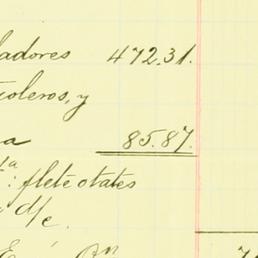 adores 472.31.
oleros, y
a 85.87.
1a : flete otates
d/c.